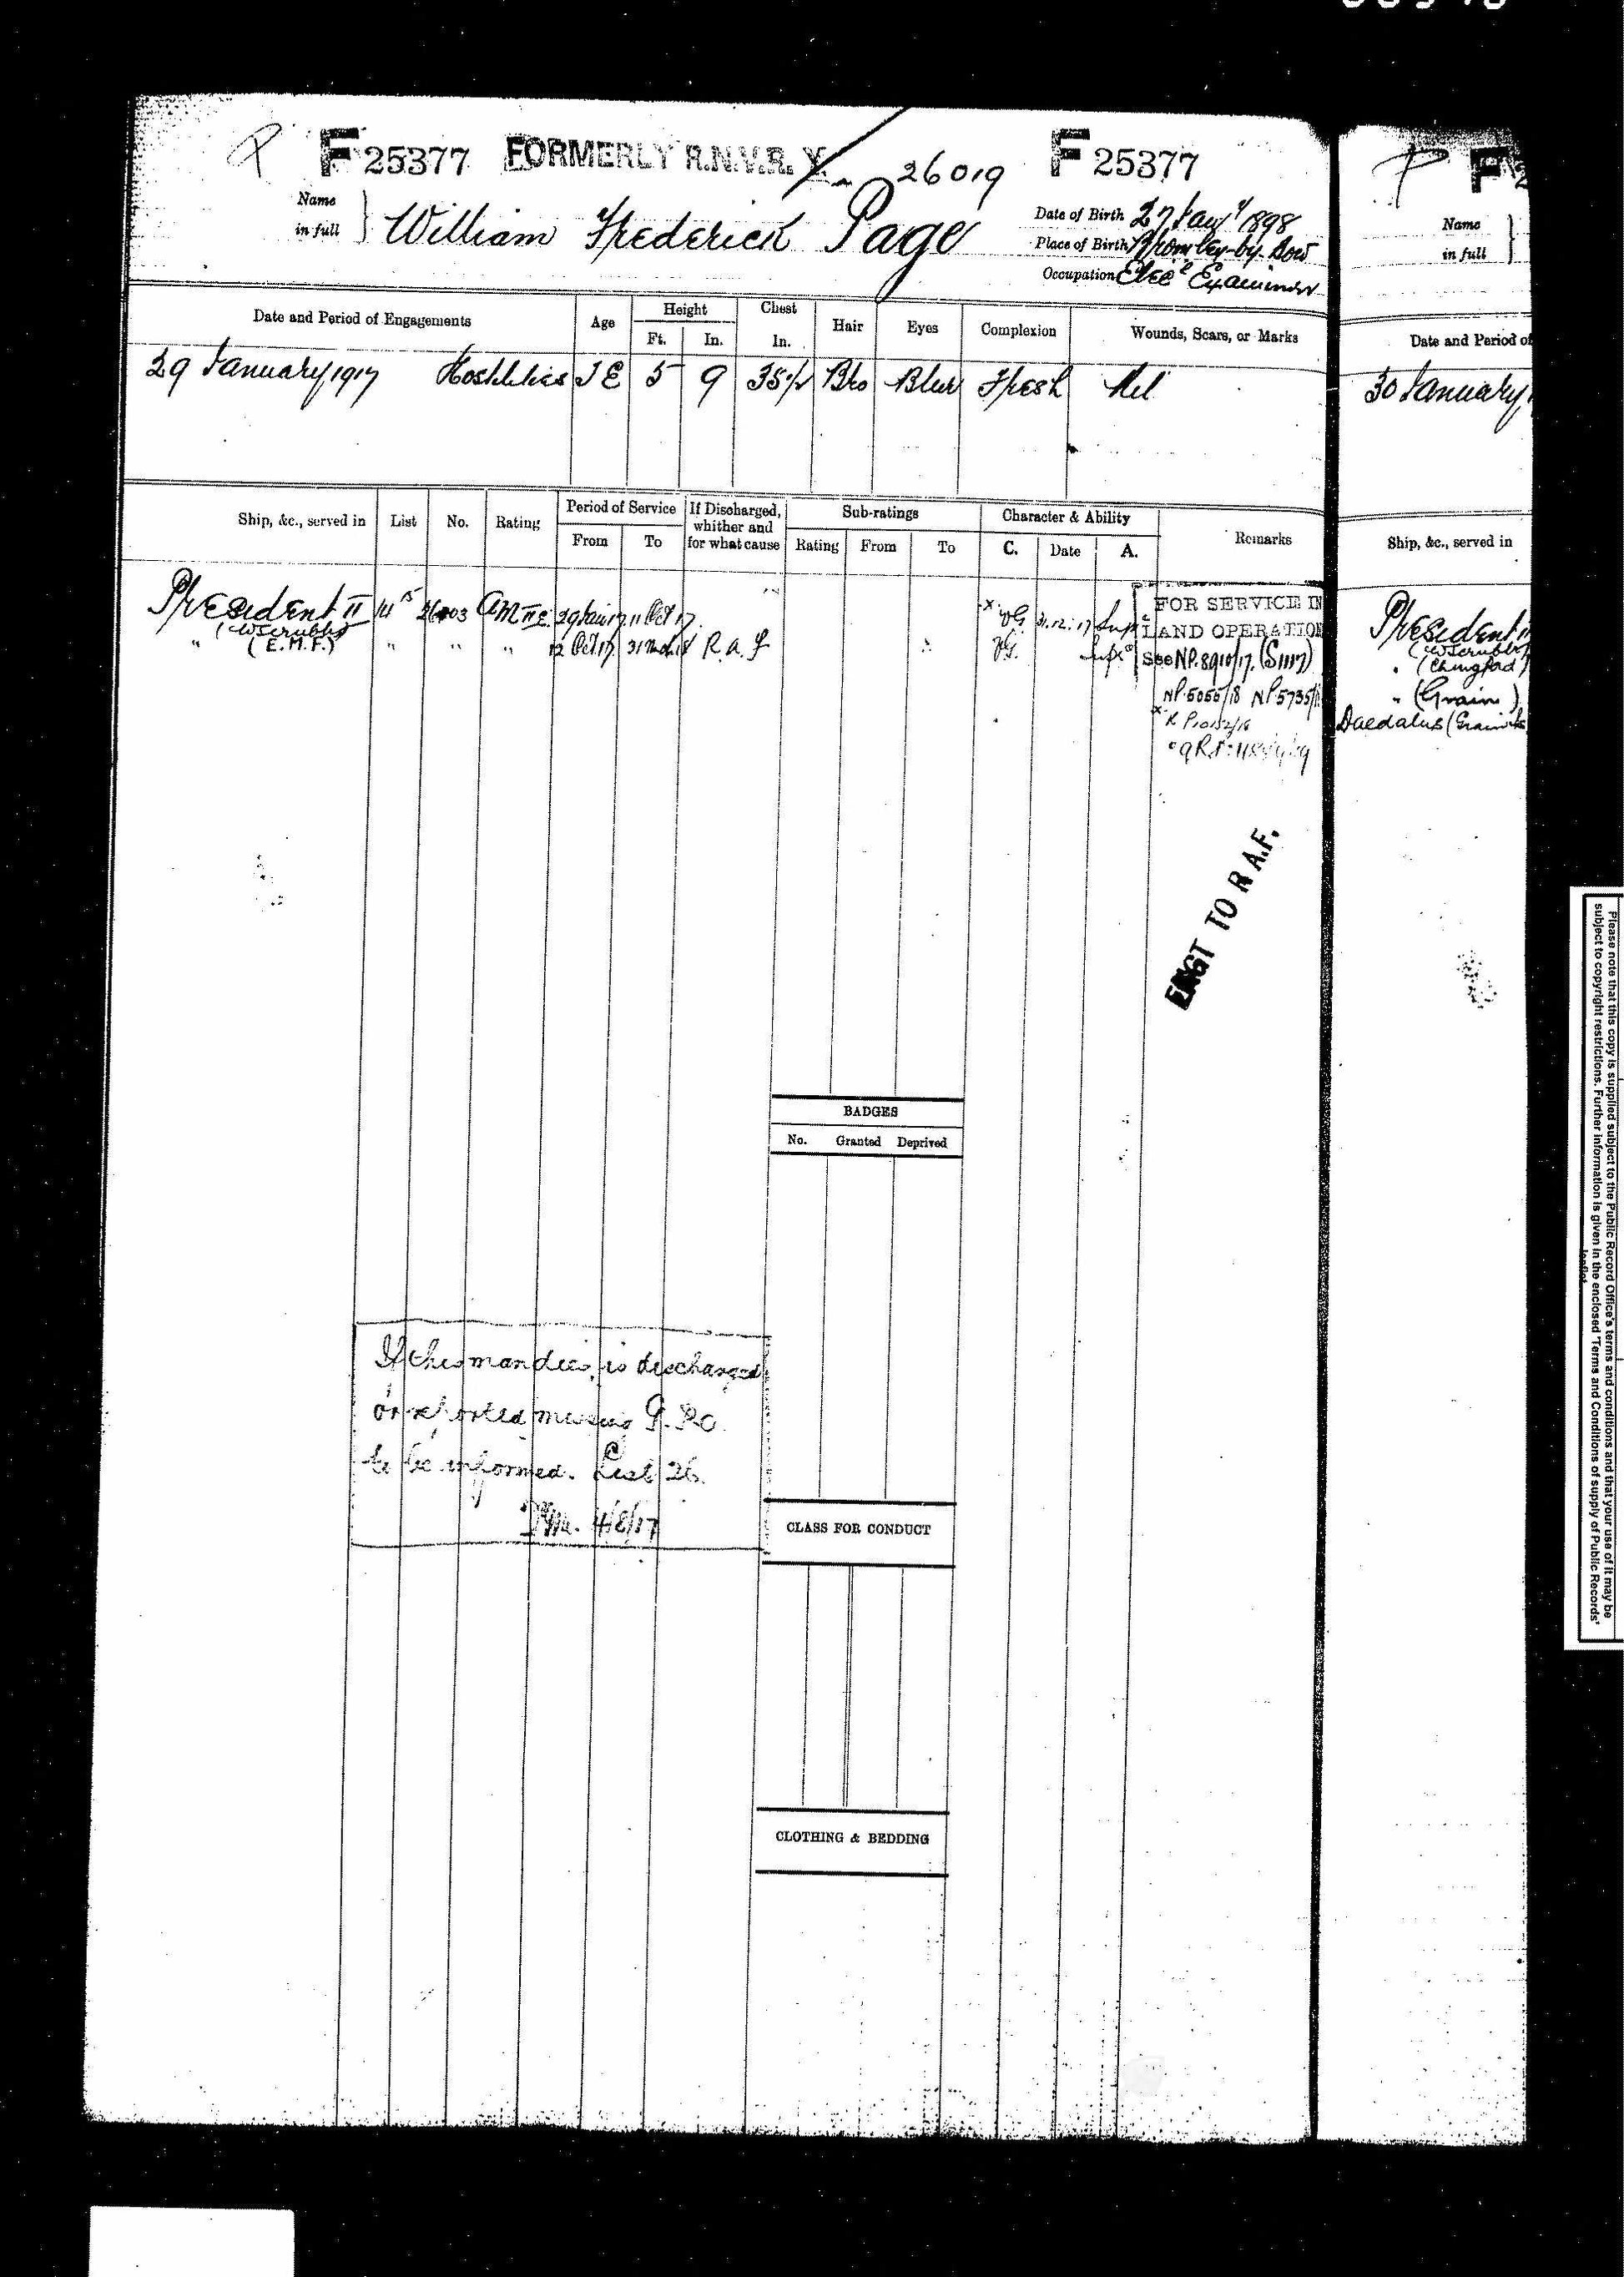 P F 25377 FORMERLY R.N.V.R. 26019 F 25377
Name in full } William Frederick Page
Date of Birth 27 Jany 1898
Place of Birth Bromley-by-Bow
Occupation Elecl Examiner
Date and Period of Engagements Age Height Ft. In. Chest In. Hair Eyes Complexion Wounds, Scars, or Marks
29 January 1917 Hostilities 5 9 35½ Bro Blue Fresh Nil
Ship, &c., served in List No. Rating Period of Service From To If Discharged, whither and for what cause Sub-ratings Rating From To Character & Ability C. Date A. Remarks
President II 15 AM II E. 29 Jan 17 11 Oct 17. VG 31.12.17
(W Scrubbs)
" (E.M.F.) " " " 12 Oct 17 31 Mch 18 R.a.f VG.
FOR SERVICE IN
LAND OPERATION
See NP.8910/17. (S1117)
NP.5055/18 NP.5735/1
ENGT TO R A.F.
BADGES
No. Granted Deprived
If this man dies, is discharged
or reported missing
to be informed. List 26.
4/8/17
CLASS FOR CONDUCT
CLOTHING & BEDDING
P F 2
Name in full }
Date and Period of
30 January 1
Ship, &c., served in
President II
(W Scrubbs)
" (Chingford)
" (Grain)
Daedalus (Grain
Please note that this copy is supplied subject to the Public Record Office's terms and conditions and that your use of it may be
subject to copyright restrictions. Further information is given in the enclosed 'Terms and Conditions of supply of Public Records'
leaflet